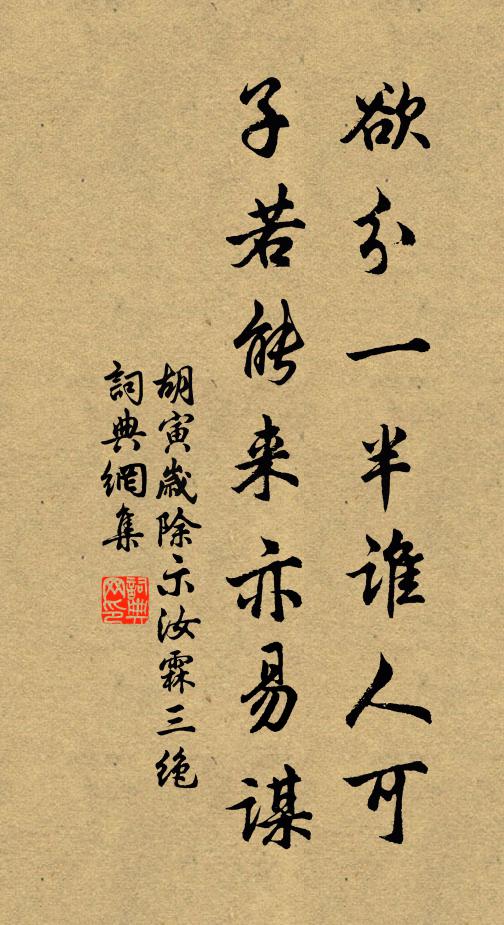 欲分一半谁人可
子若能来亦易谋
胡寅歲除示汝霖三绝
詞典網集
詞典网印